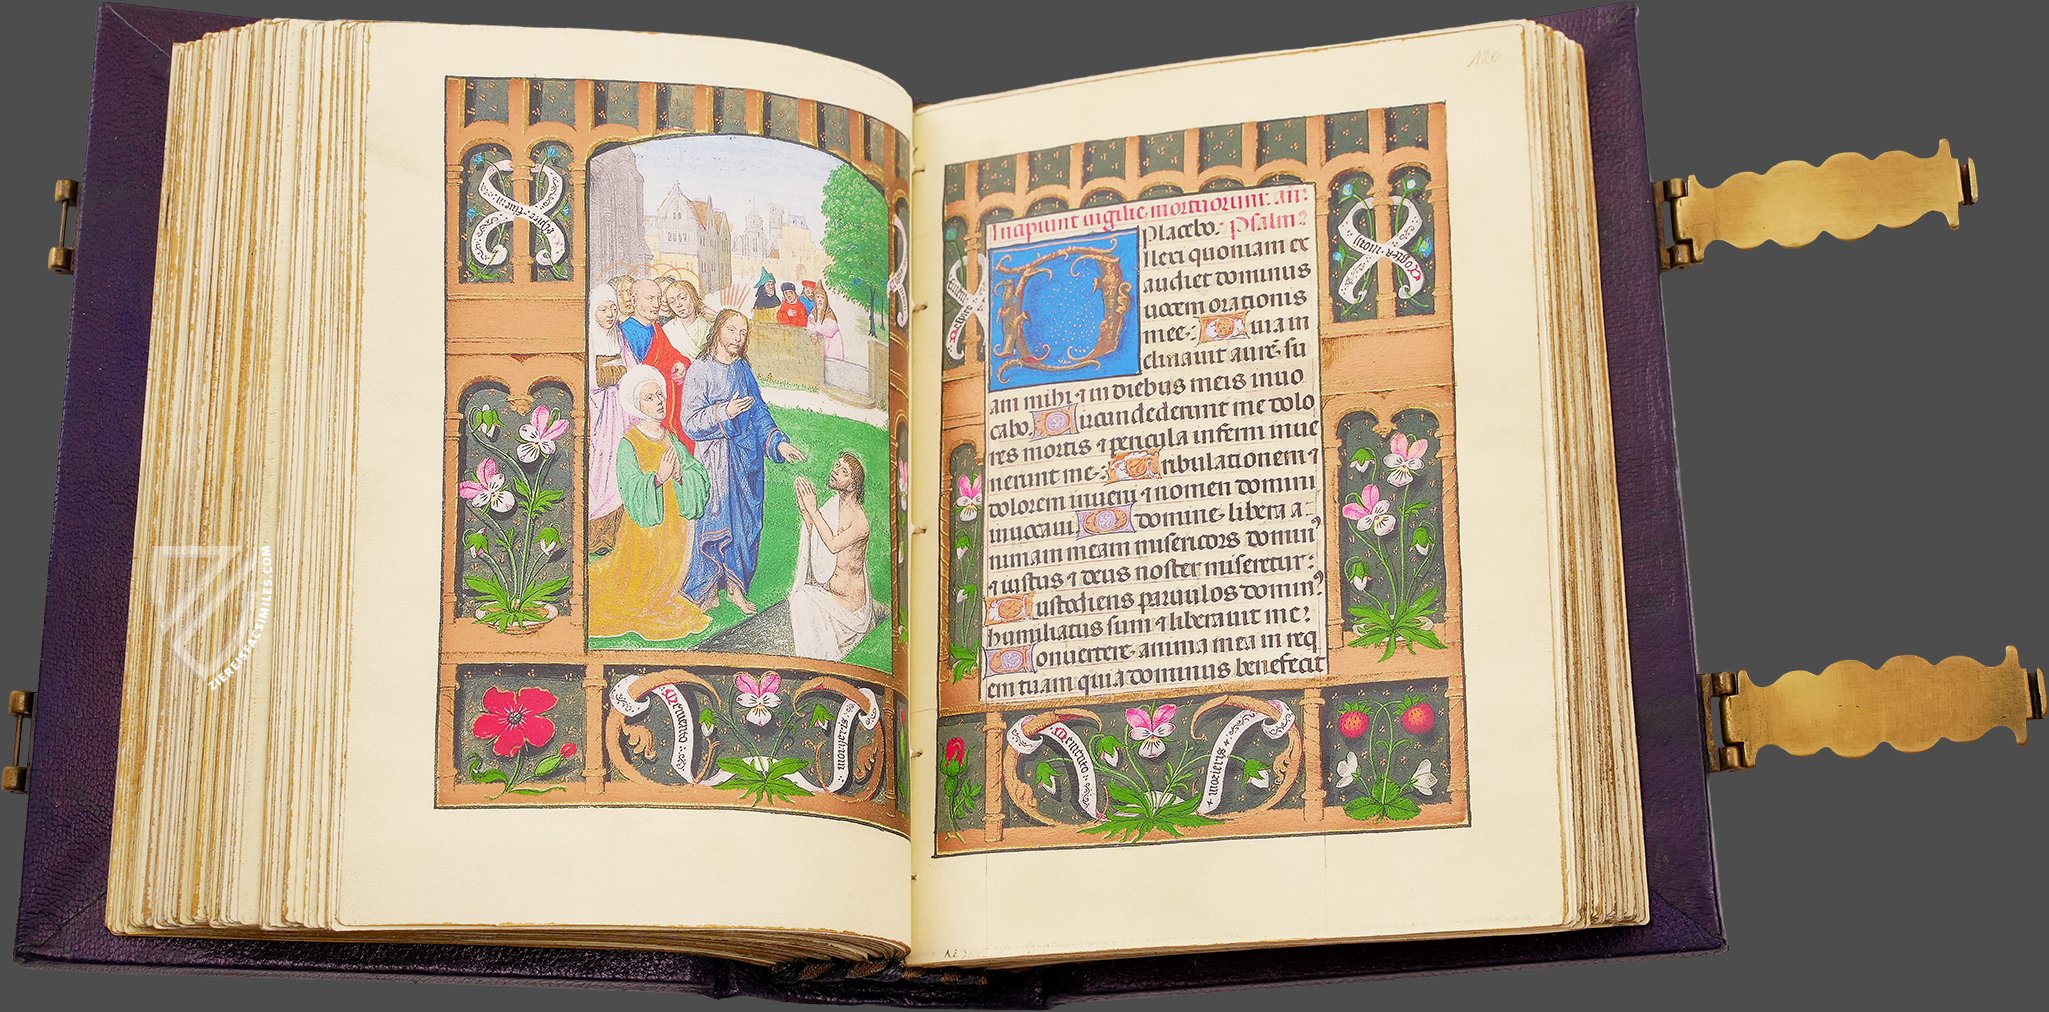 Memento
morieris
120
Incipiunt vigilie mortuorum. an.
Placebo. Psalm.
Dilexi quoniam ex
audiet dominus
uocem orationis
mee. Quia in
clinauit aurē su
am mihi ⁊ in diebus meis inuo
cabo. Circundederunt me dolo
res mortis ⁊ pericula inferni inue
nerunt me. Tribulationem ⁊
dolorem inueni ⁊ nomen domini
inuocaui. O domine libera a
nimam meam misericors domin⁹
⁊ iustus ⁊ deus noster miseretur:
Custodiens paruulos domin⁹
humiliatus sum ⁊ liberauit me.
Conuertere anima mea in req
em tuam quia dominus benefecit
Memento
morieris
ZIEREISFACSIMILES.COM